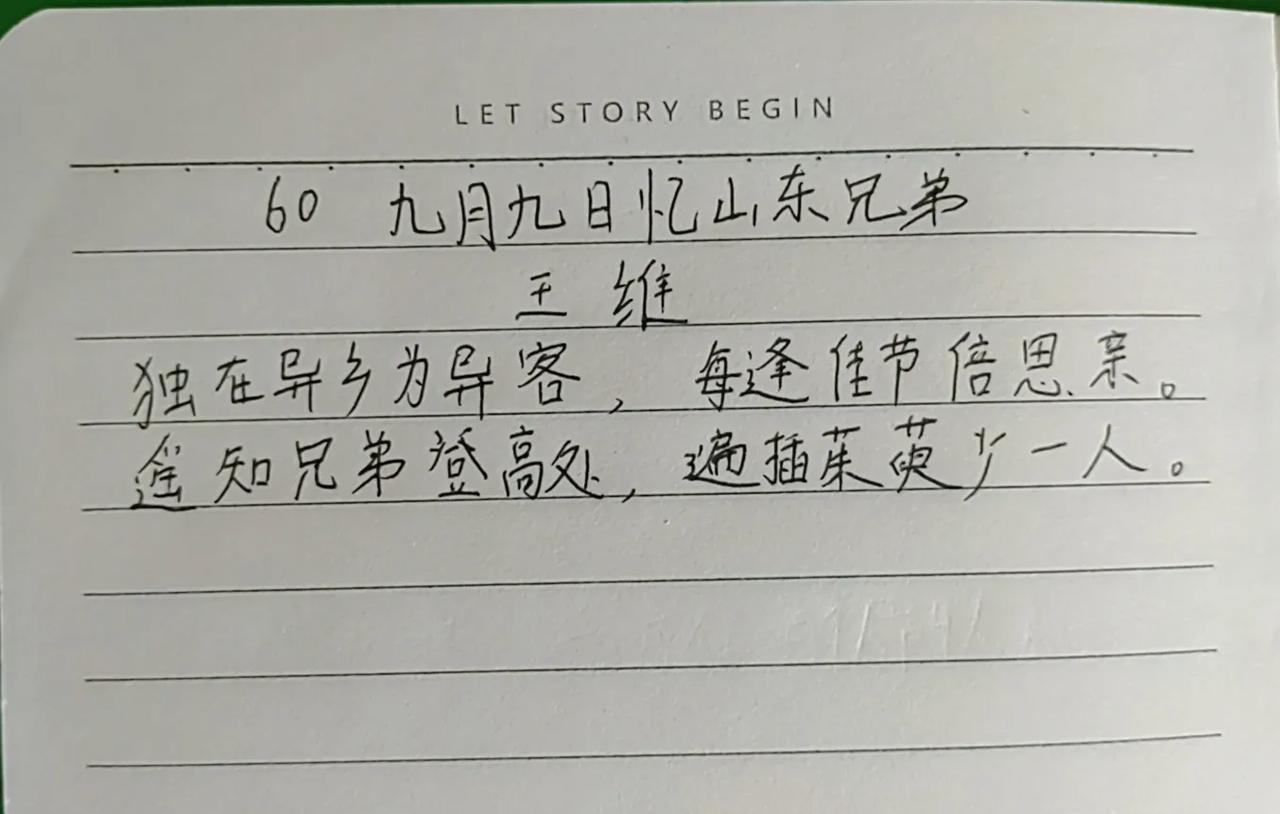 LET STORY BEGIN
60 九月九日忆山东兄弟
王维
独在异乡为异客，每逢佳节倍思亲。
遥知兄弟登高处，遍插茱萸少一人。